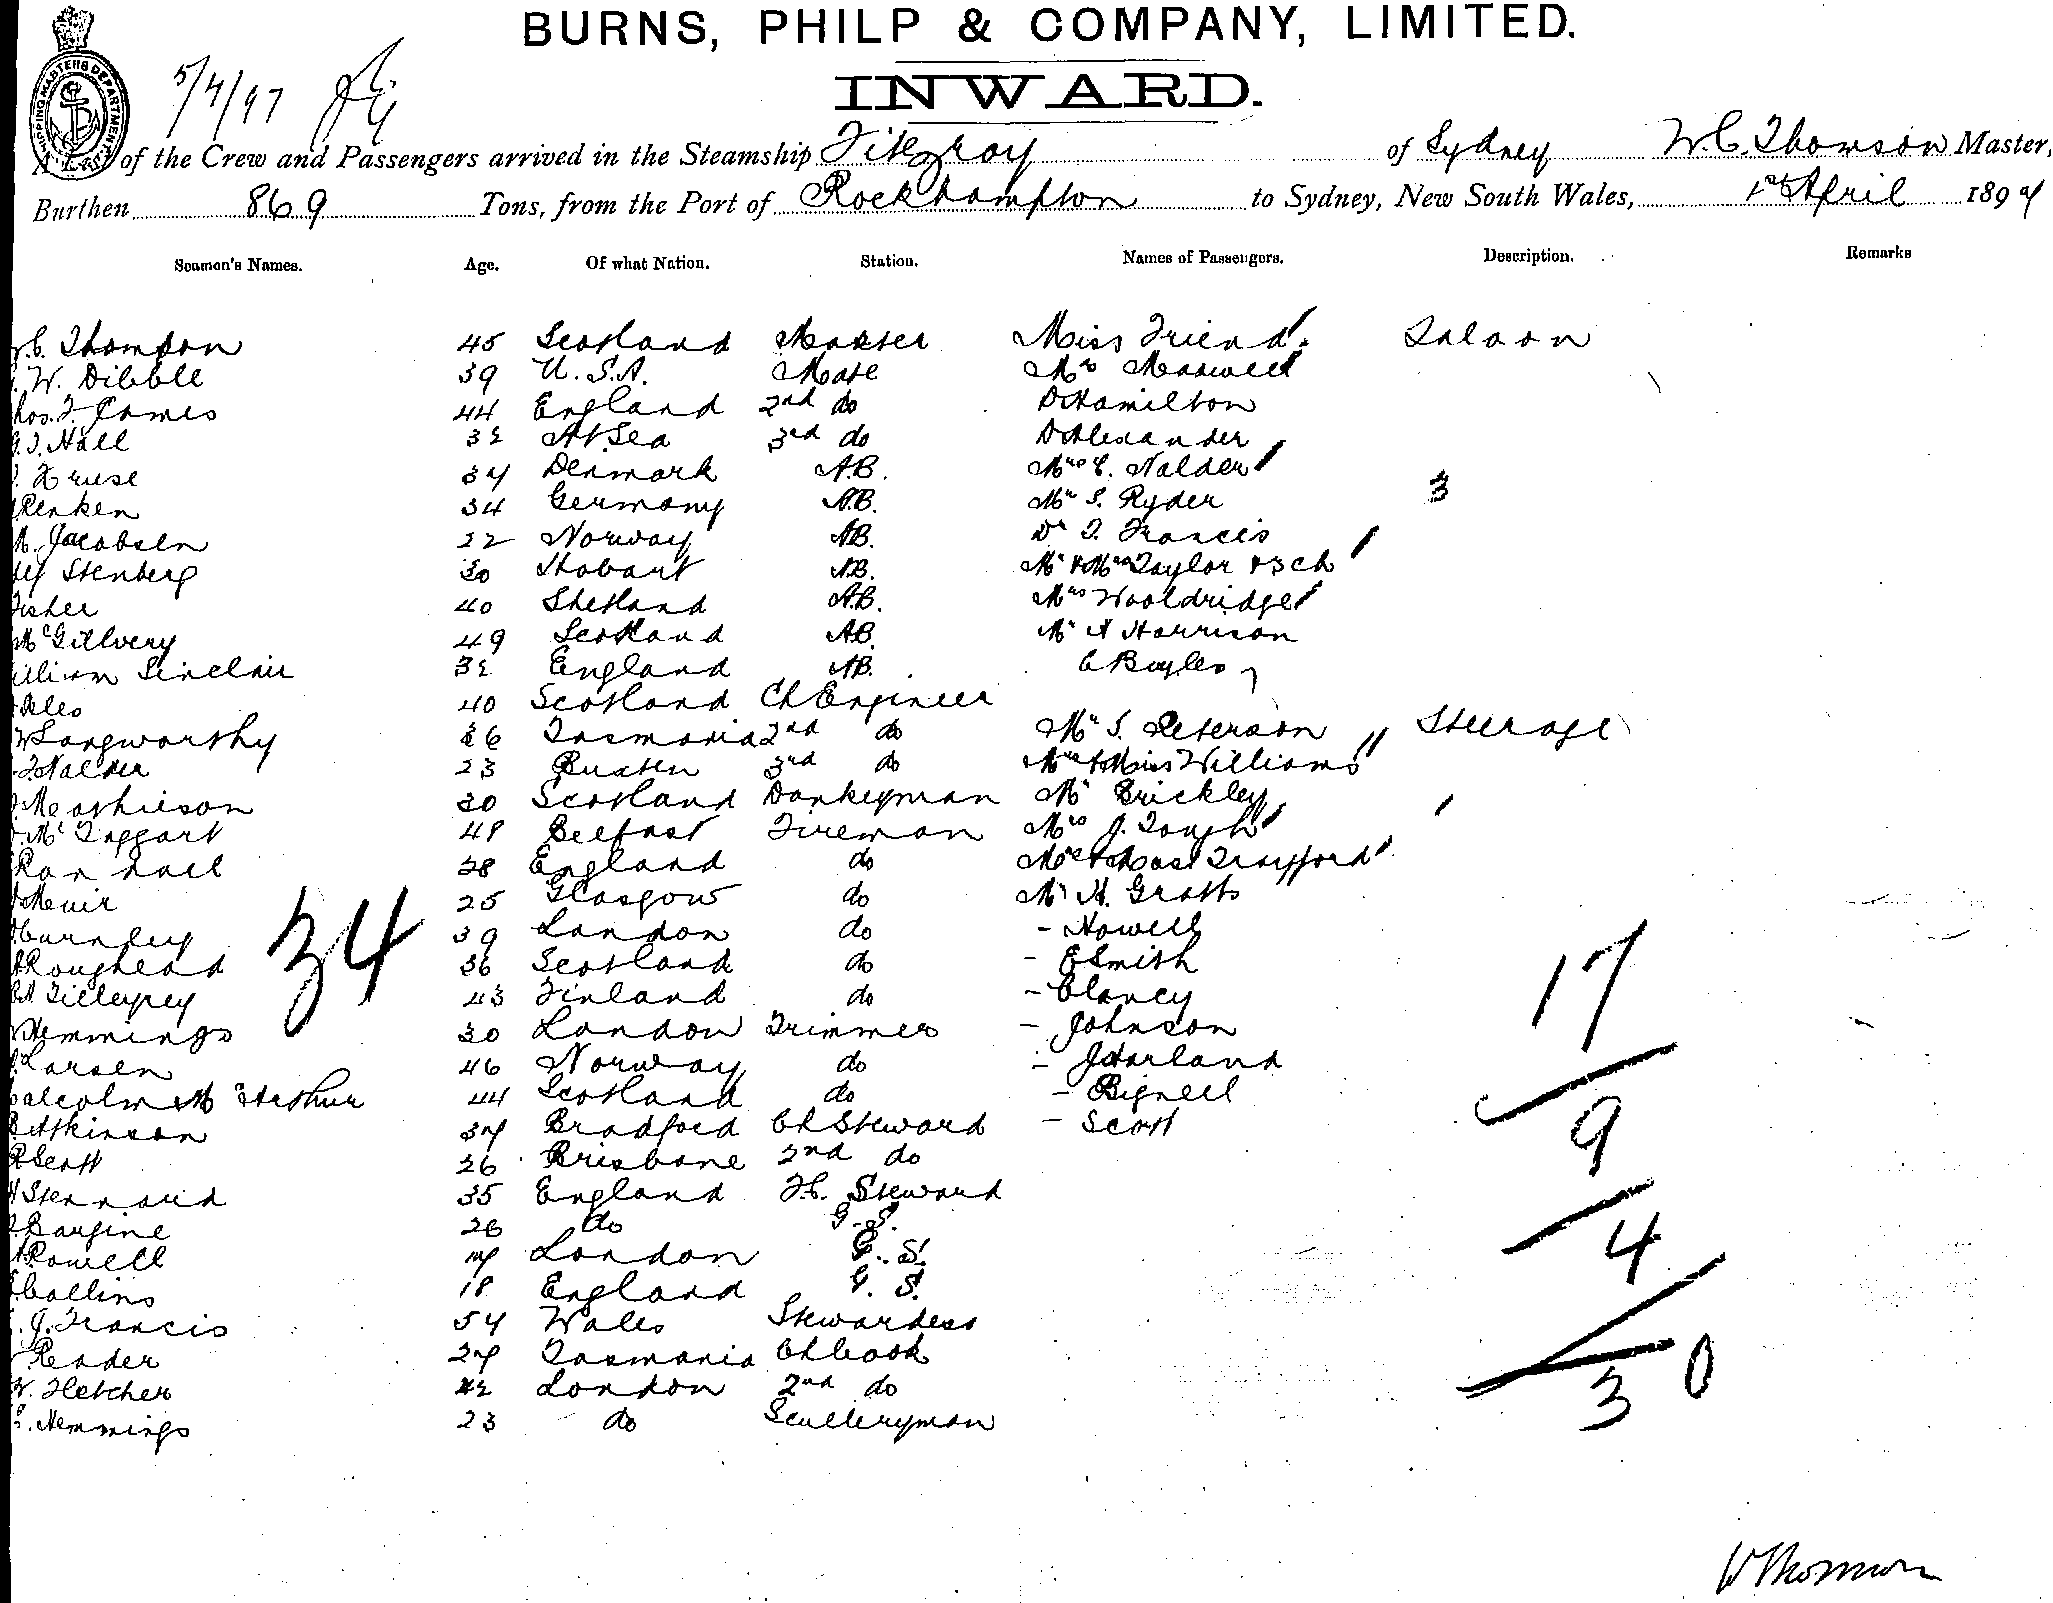 BURNS, PHILP & COMPANY, LIMITED.
INWARD.
SHIPPING MASTERS DEPARTMENT
5/4/97
A List of the Crew and Passengers arrived in the Steamship Fitzroy of Sydney W.C. Thomson Master,
Burthen 869 Tons, from the Port of Rockhampton to Sydney, New South Wales, 1st April 1897
Seamen's Names. Age. Of what Nation. Station. Names of Passengers. Description. Remarks
C. Thomson 45 Scotland Master Miss Friend Saloon
W. Dibble 39 U.S.A. Mate Mrs Maxwell
hos. F. James 44 England 2nd do D Hamilton
J. Hall 32 At Sea 3rd do D Alexander
Kruse 37 Denmark A.B. Mrs C. Nalder
Renken 34 Germany A.B. Mr S. Ryder 3
M. Jacobsen 22 Norway AB. Dr F. Francis
Stenberg 30 Hobart A.B. Mr & Mrs Taylor & 3 ch
Fisher 40 Shetland A.B. Mrs Wooldridge
McGillvery 49 Scotland A.B. Mr A Harrison
illiam Sinclair 32 England AB. C Bayles
Isles 40 Scotland Ch Engineer
Langworthy 26 Tasmania 2nd do Mr S. Peterson Steerage
Nalder 23 3rd do Mrs & Miss Williams
Mathieson 30 Scotland Donkeyman Mr Brickley
McTaggart 48 Belfast Fireman Mrs J. Tough
Rannall 28 England do Mrs & Mast Trayfford
Meuir 25 Glasgow do Mr H. Gratts
Gurnley 39 London do - Howell
Roughead 36 Scotland do - E Smith
Tilleyrey 43 Finland do - Clancy
Hemmings 30 London Trimmer - Johnson
Larsen 46 Norway do - J Harland
alcolm McArthur 44 Scotland do - Bignell
Atkinson 37 Bradford Ch Steward - Scott
R Scott 26 Brisbane 2nd do
Stennard 35 England F.C. Steward
Bargine 26 do G.S.
Rowell 17 London G.S.
Collins 18 England G.S.
J. Francis 54 Wales Stewardess
Reader 27 Tasmania Ch Cook
W. Fletcher 42 London 2nd do
Hemmings 23 do Sculleryman
34
17
9
4
30
W Thomson